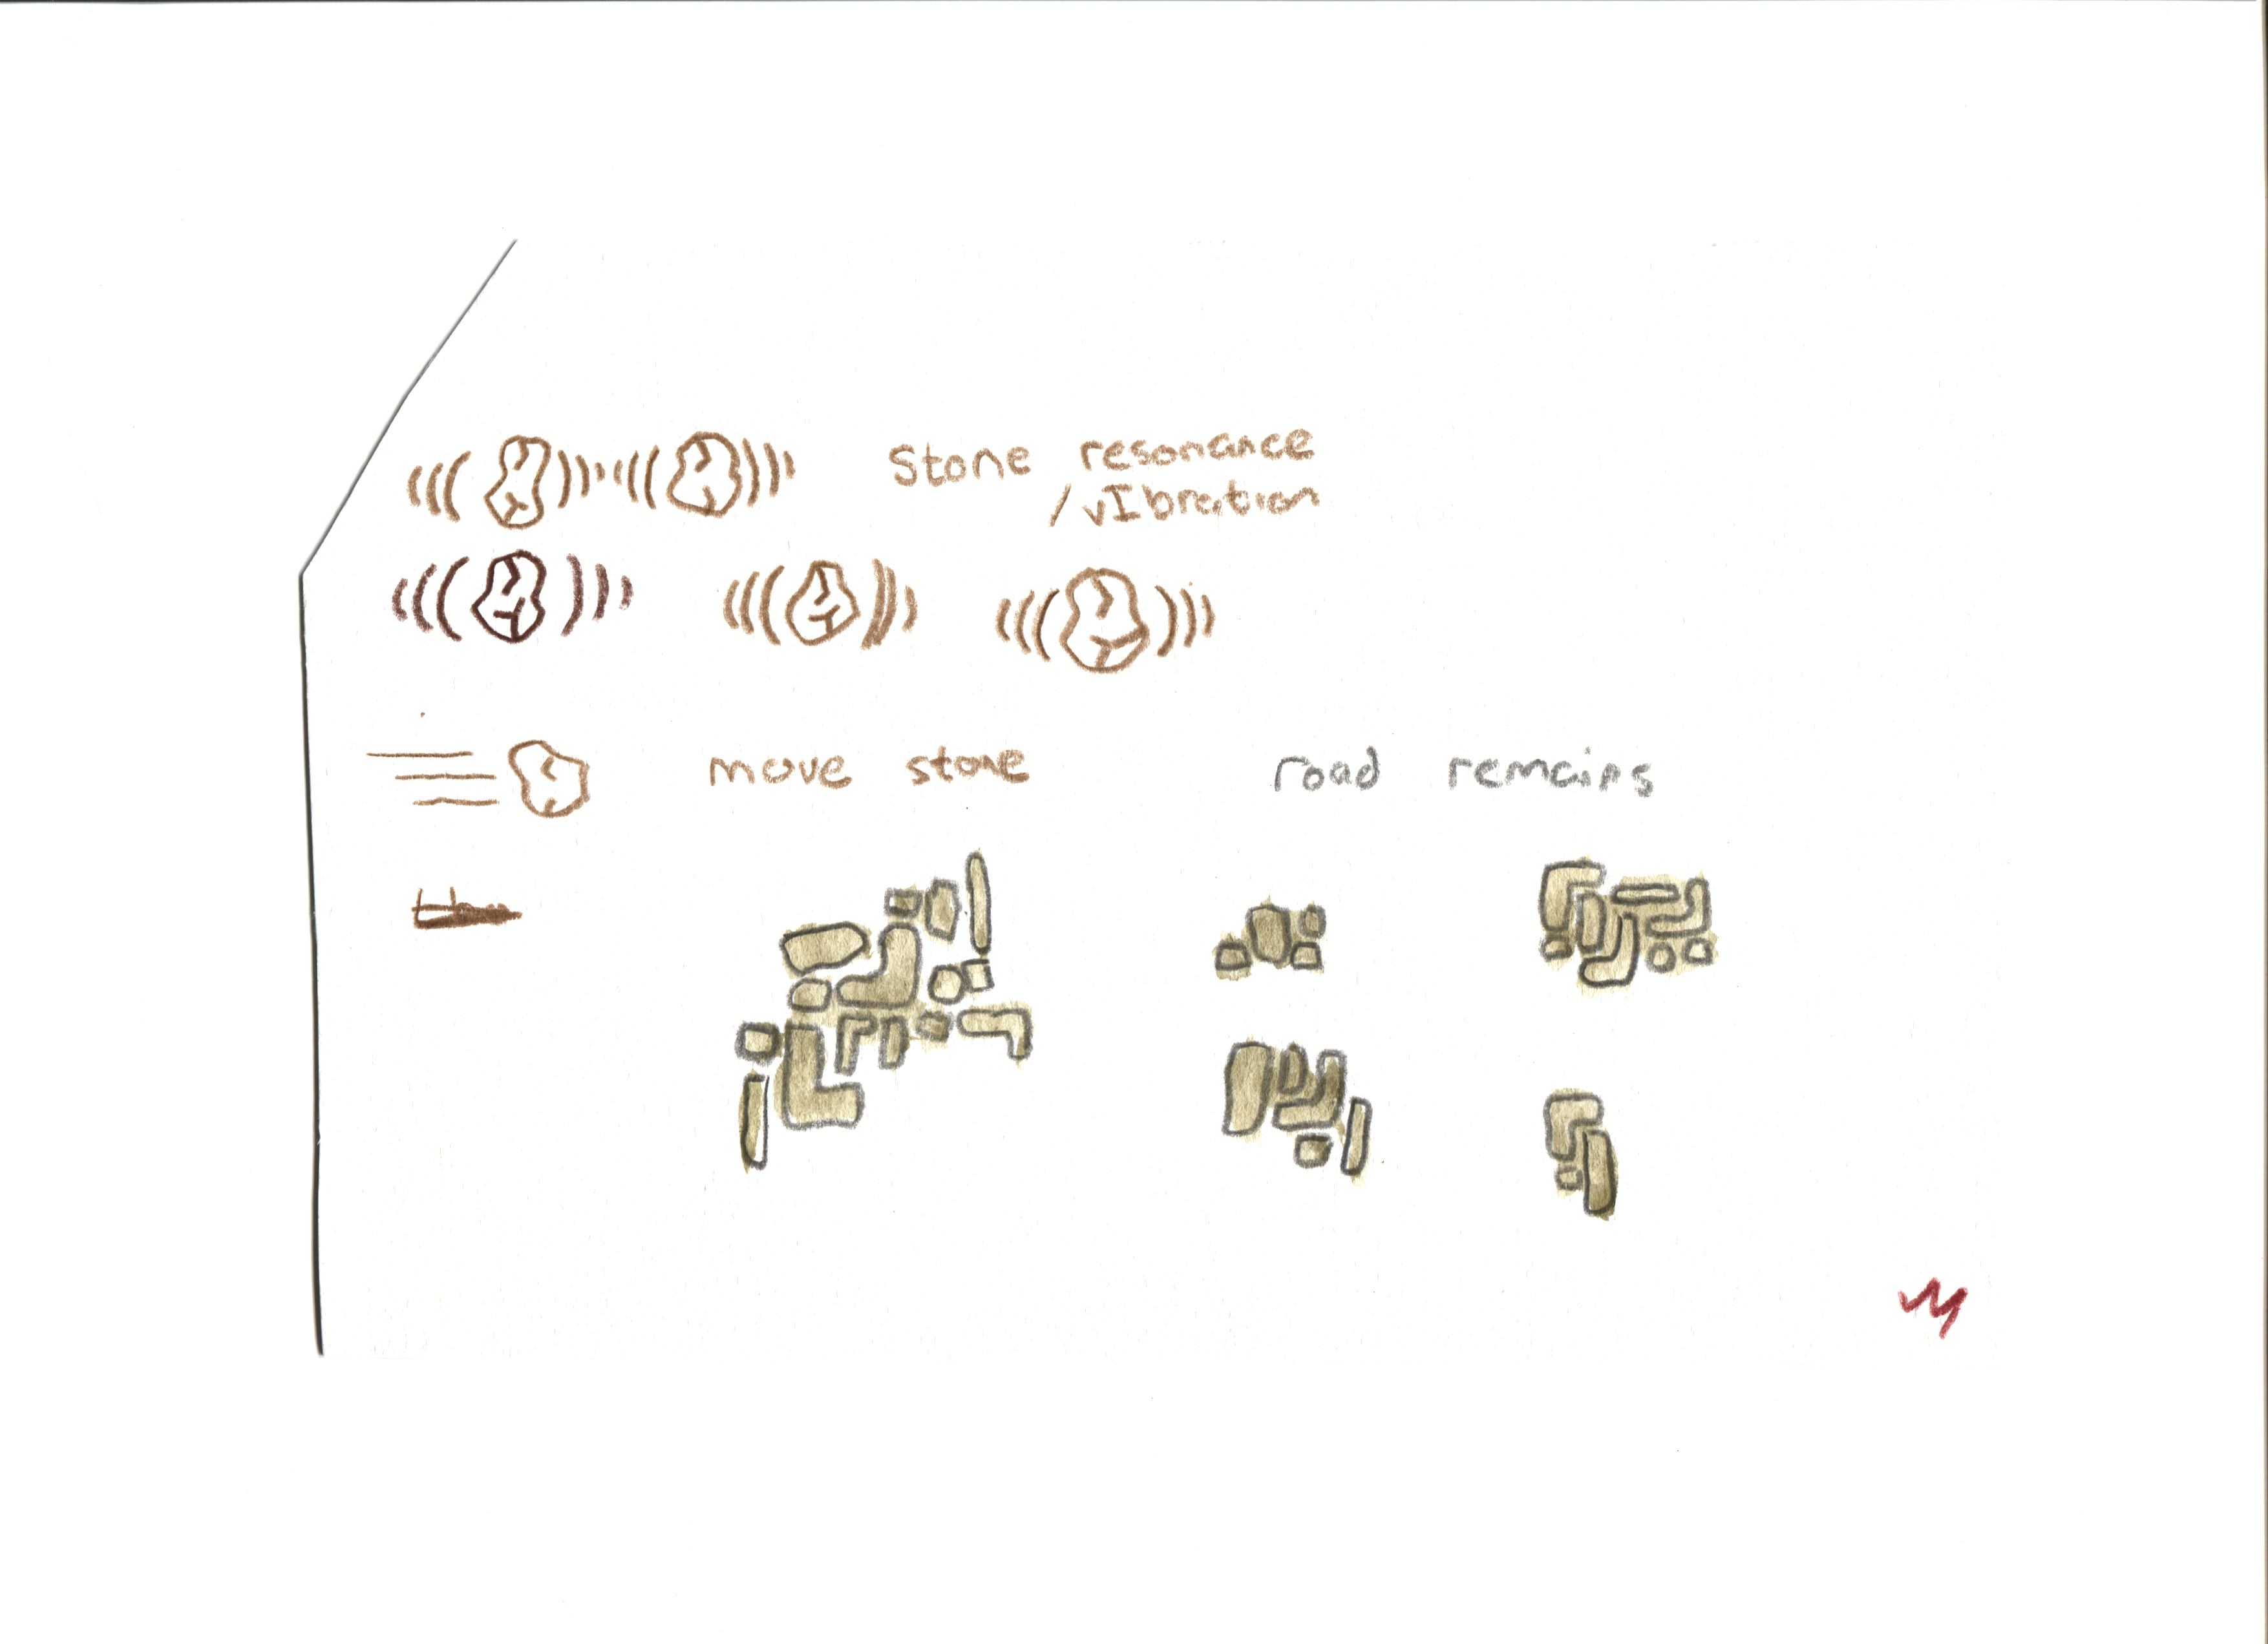 Stone resonance
/vIbration
move stone
road remains